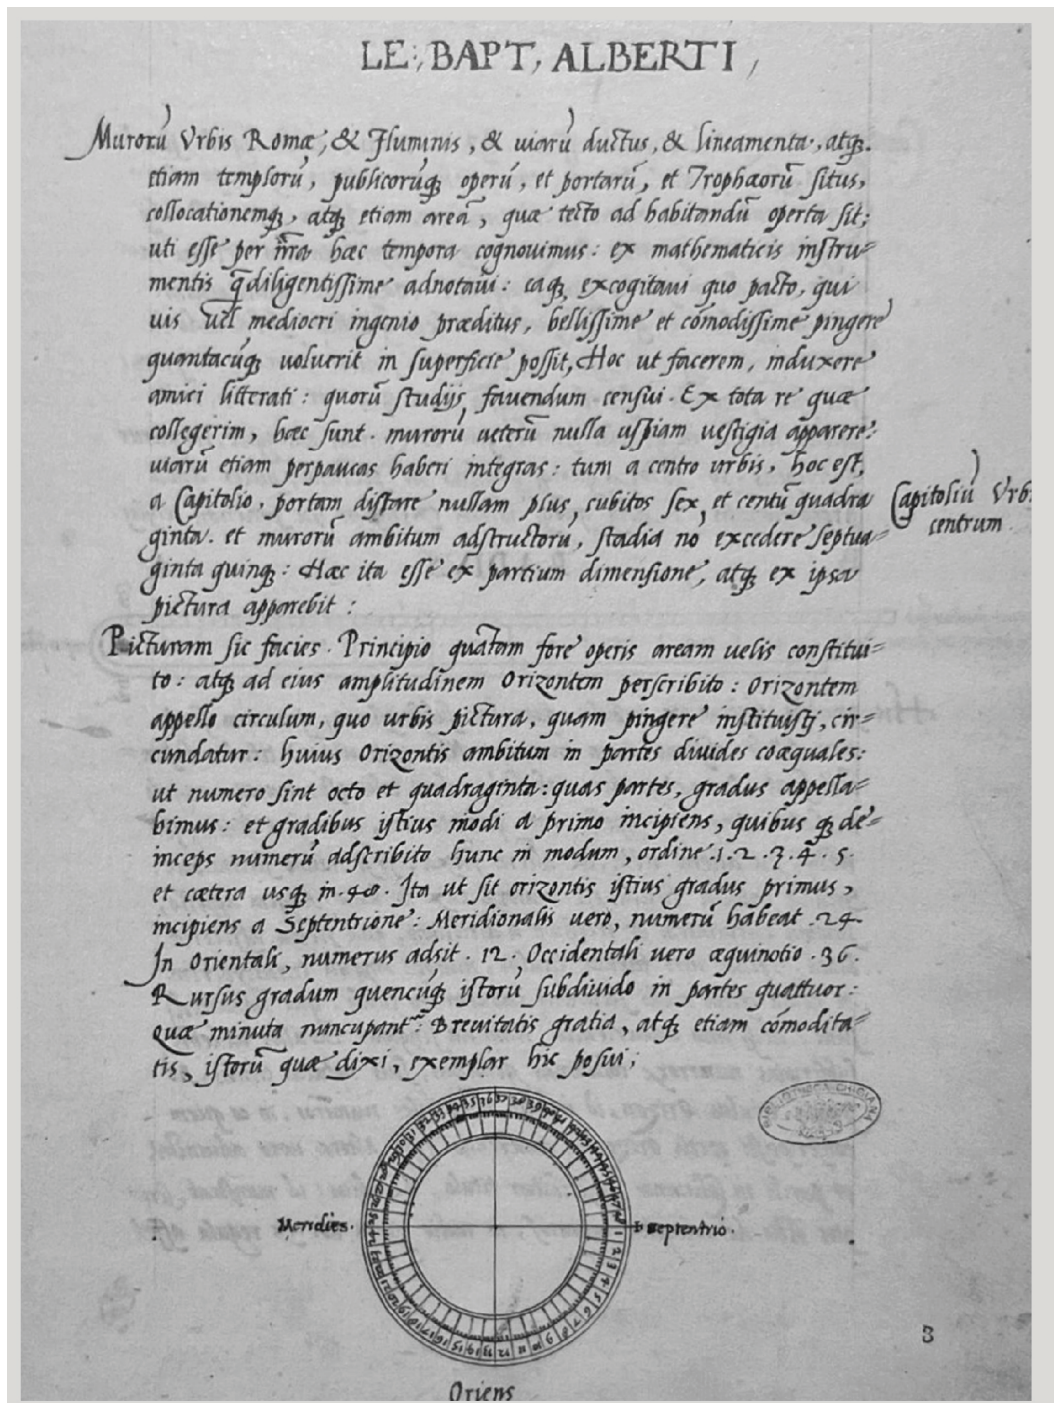 LE:, BAPT, ALBERTI,
Murorū Vrbis Romæ, & Fluminis, & uiarū ductus, & lineamenta, atq;.
etiam templorū, publicorūq; operū, et portarū, et Trophæorū situs,
collocationemq;, atq; etiam areā, quæ tecto ad habitandū operta sit;
uti esse per nr̄a hæc tempora cognouimus: ex mathematicis instru=
mentis q̄ diligentissime adnotaui: eaq; excogitaui quo pacto, qui
uis uel mediocri ingenio præditus, bellissime et cōmodissime pingere
quantacūq; uoluerit in superficie possit, Hoc ut facerem, induxere
amici litterati: quorū studijs fauendum censui. Ex tota re quæ
collegerim, hæc sunt. murorū ueterū nulla uspiam uestigia apparere:
uiarū etiam perpaucas haberi integras: tum a centro urbis, hoc est,
a Capitolio, portam distare nullam plus, cubitos sex, et centū quadra
Capitoliū Vrb
centrum
ginta. et murorū ambitum adstructorū, stadia nō excedere septua=
ginta quinq;: Hæc ita esse ex partium dimensione, atq; ex ipsa
pictura apparebit:
Picturam sic facies. Principio quātam fore operis aream uelis constitui=
to: atq; ad eius amplitudinem Orizontem perscribito: Orizontem
appello circulum, quo urbis pictura, quam pingere instituistj, cir=
cundatur: huius Orizontis ambitum in partes diuides coæquales:
ut numero sint octo et quadraginta: quas partes, gradus appella=
bimus: et gradibus istius modi a primo incipiens, quibus q; de=
inceps numerū adscribito hunc in modum, ordine .1.2.3.4.5.
et cætera usq; in .48. Ita ut sit orizontis istius gradus primus,
incipiens a Septentrione: Meridionalis uero, numerū habeat .24.
In Orientali, numerus adsit .12. Occidentali uero æquinotio .36.
Rursus gradum quencūq; istorū subdiuido in partes quattuor:
Quæ minuta nuncupantr: Breuitatis gratia, atq; etiam cōmodita=
tis, istorū quæ dixi, exemplar hic posui;
Meridies.
septentrio.
Oriens
3